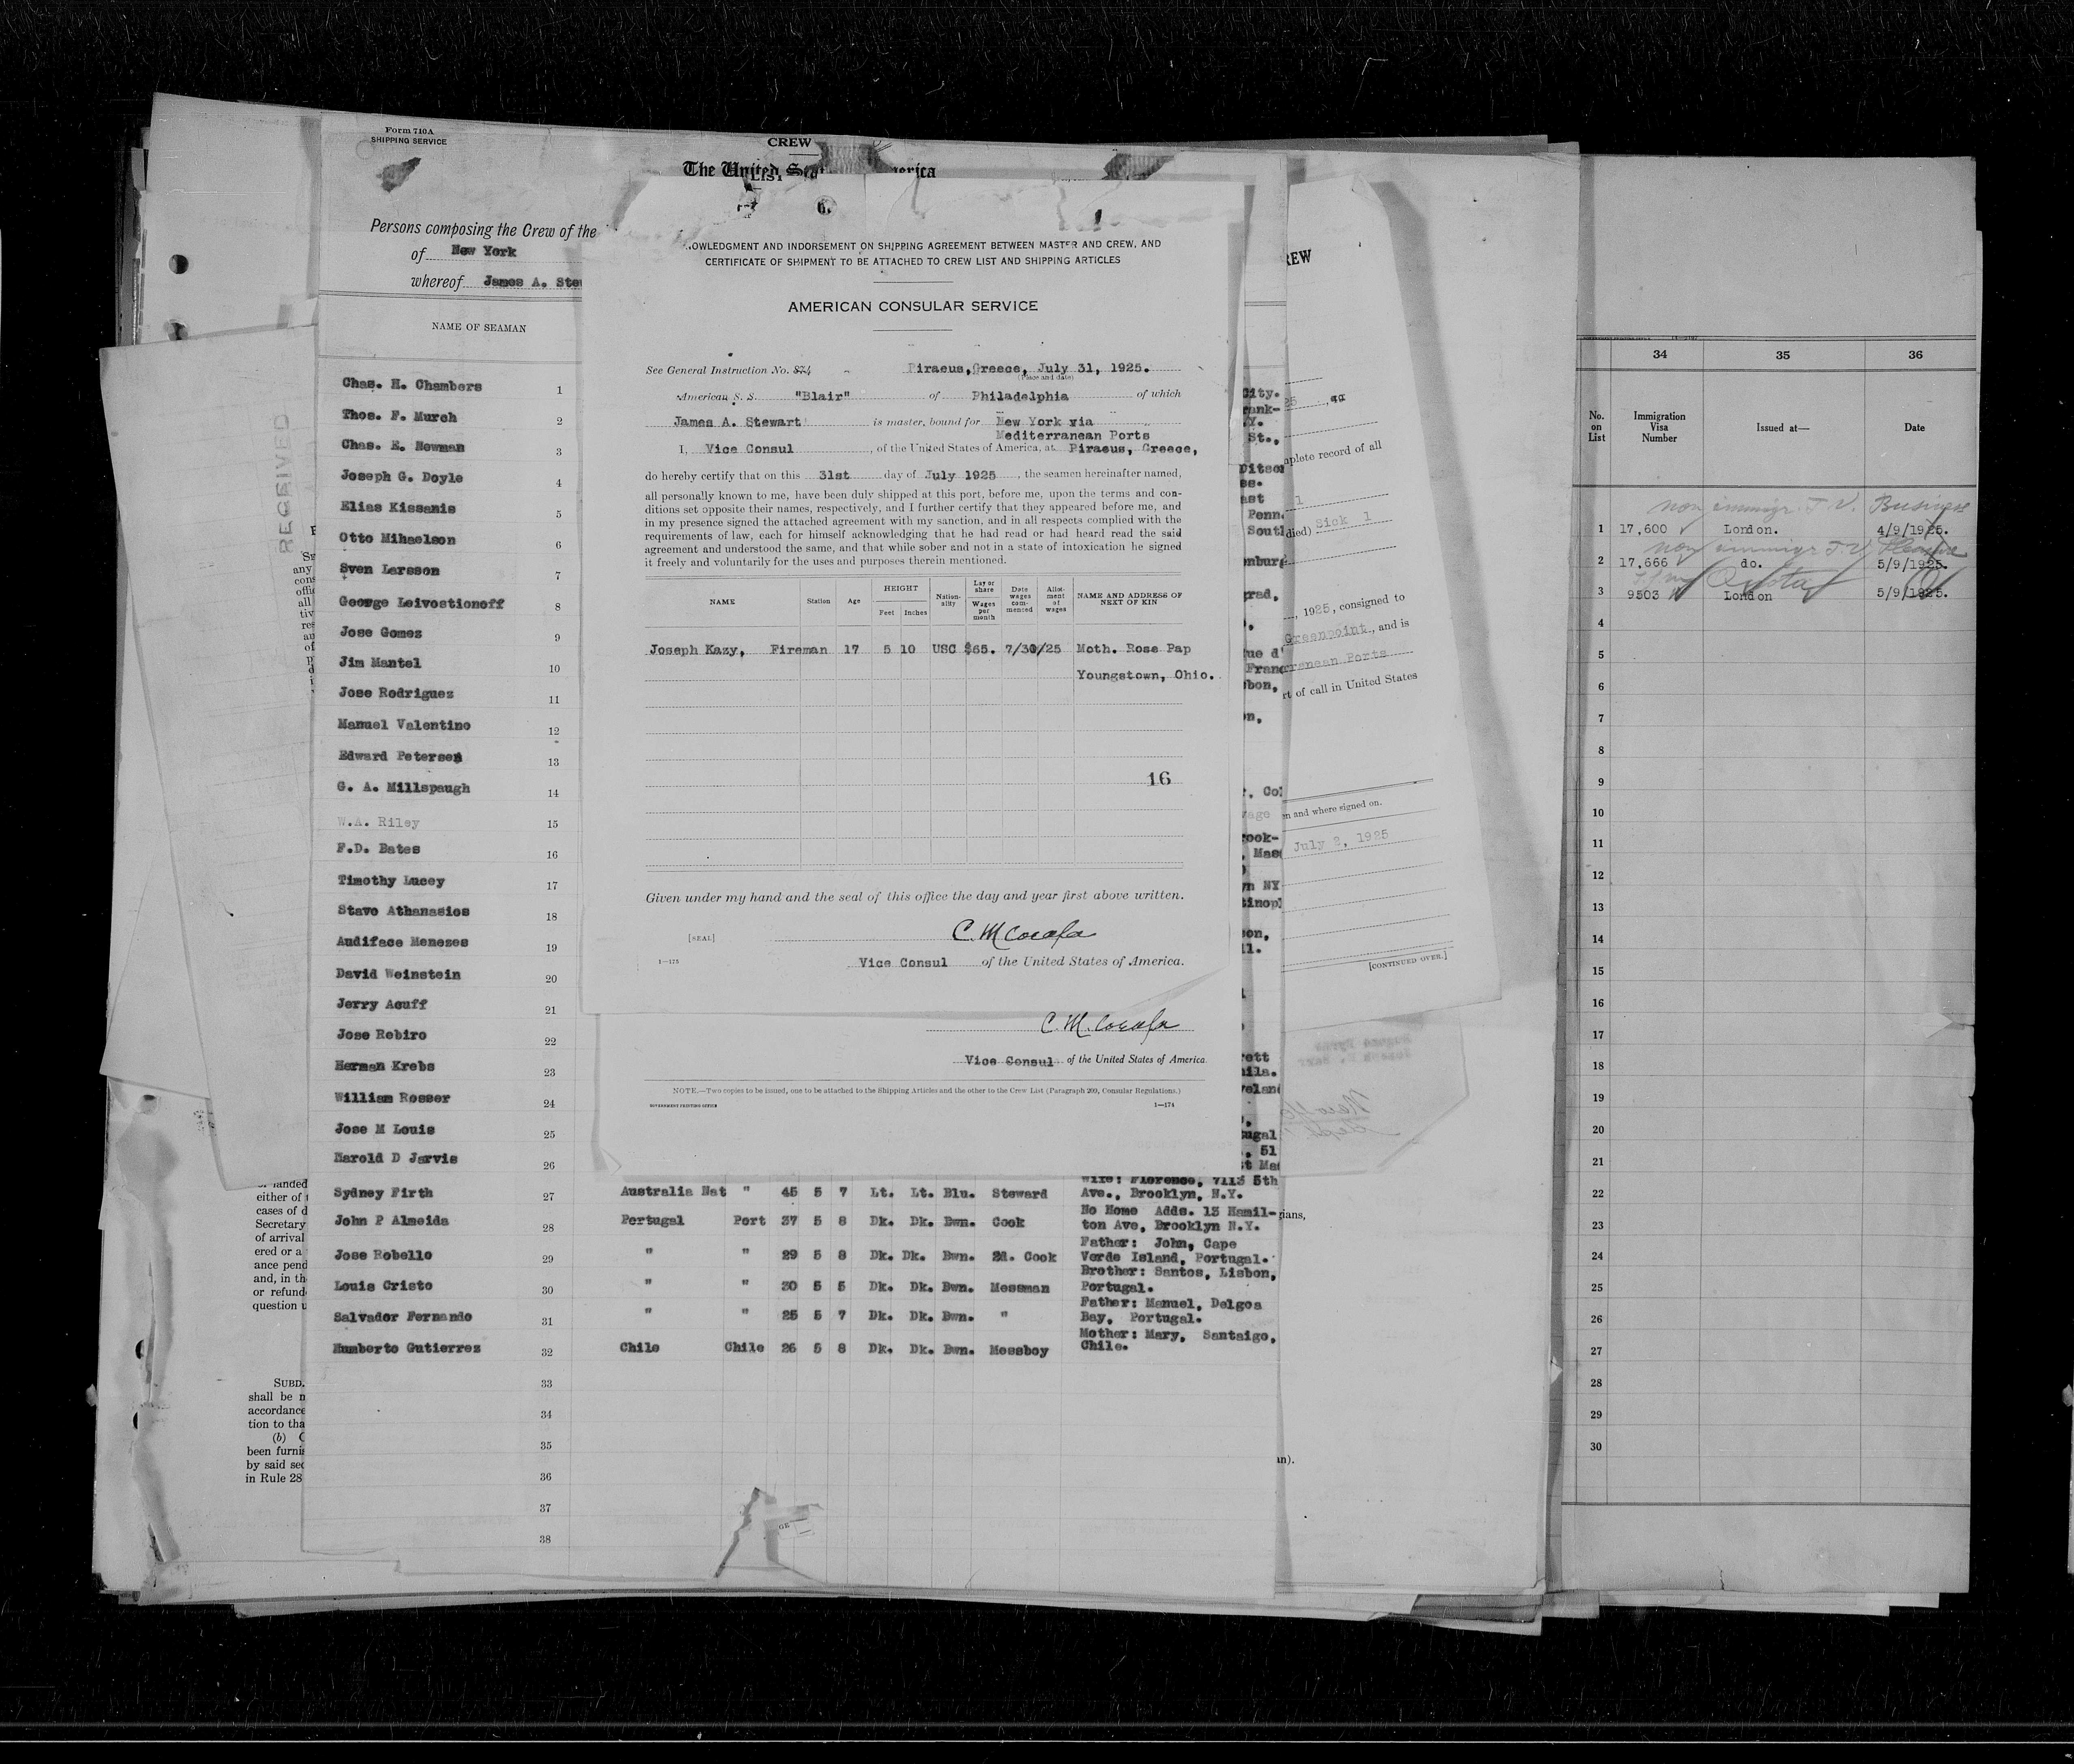 Form 710A
SHIPPING SERVICE
CREW
LIST
The United
erica
Persons composing the Crew of the
of New York
whereof James A. Ste
NAME OF SEAMAN
Chas. H. Chambers 1
Thos. F. Murch 2
Chas. E. Newman 3
Joseph G. Doyle 4
Elias Kissanis 5
Otto Mihaelson 6
Sven Larsson 7
George Leivostionoff 8
Jose Gomez 9
Jim Mantel 10
Jose Rodriguez 11
Manuel Valentino 12
Edward Petersen 13
G. A. Millspaugh 14
W.A. Riley 15
F.D. Bates 16
Timothy Lucey 17
Stavo Athanasios 18
Audiface Menezes 19
David Weinstein 20
Jerry Acuff 21
Jose Rebiro 22
Herman Krebs 23
William Rosser 24
Jose M Louis 25
Harold D Jarvis 26
Sydney Firth 27 Australia Nat " 45 5 7 Lt. Lt. Blu. Steward Wife: Florence, 7113 5th
Ave., Brooklyn, N.Y.
John P Almeida 28 Portugal Port 37 5 8 Dk. Dk. Bwn. Cook No Home Adds. 13 Hamil-
ton Ave, Brooklyn N.Y.
Jose Robello 29 " " 29 5 8 Dk. Dk. Bwn. 2d. Cook Father: John, Cape
Verde Island, Portugal.
Louis Cristo 30 " " 30 5 5 Dk. Dk. Bwn. Messman Brother: Santos, Lisbon,
Portugal.
Salvador Fernando 31 " " 25 5 7 Dk. Dk. Bwn. " Father: Manuel, Delgoa
Bay, Portugal.
Humberto Gutierrez 32 Chile Chile 26 5 8 Dk. Dk. Bwn. Messboy Mother: Mary, Santaigo,
Chile.
33
34
35
36
37
38
NOWLEDGMENT AND INDORSEMENT ON SHIPPING AGREEMENT BETWEEN MASTER AND CREW, AND
CERTIFICATE OF SHIPMENT TO BE ATTACHED TO CREW LIST AND SHIPPING ARTICLES
AMERICAN CONSULAR SERVICE
See General Instruction No. 874 Piraeus, Greece, July 31, 1925.
(Place and date)
American S. S. "Blair" of Philadelphia of which
James A. Stewart is master, bound for New York via
Mediterranean Ports
I, Vice Consul, of the United States of America, at Piraeus, Greece,
do hereby certify that on this 31st day of July 1925, the seamen hereinafter named,
all personally known to me, have been duly shipped at this port, before me, upon the terms and con-
ditions set opposite their names, respectively, and I further certify that they appeared before me, and
in my presence signed the attached agreement with my sanction, and in all respects complied with the
requirements of law, each for himself acknowledging that he had read or had heard read the said
agreement and understood the same, and that while sober and not in a state of intoxication he signed
it freely and voluntarily for the uses and purposes therein mentioned.
NAME Station Age HEIGHT Feet Inches Nation-ality Lay or share Wages per month Date wages com-menced Allot-ment of wages NAME AND ADDRESS OF NEXT OF KIN
Joseph Kazy, Fireman 17 5 10 USC $65. 7/30/25 Moth. Rose Pap
Youngstown, Ohio.
16
Given under my hand and the seal of this office the day and year first above written.
[SEAL]
1—175
Vice Consul of the United States of America.
Vice Consul of the United States of America.
NOTE.—Two copies to be issued, one to be attached to the Shipping Articles and the other to the Crew List (Paragraph 209, Consular Regulations.)
GOVERNMENT PRINTING OFFICE 1—174
RECEIVED
landed
either of
cases of d
Secretary
of arrival
ered or a
ance pend
and, in th
or refund
question u
SUBD.
shall be n
accordance
tion to tha
(b)
been furni
by said sec
in Rule 28
REW
City.
St.,
Penn.
plete record of all
1
died) Sick 1
, 1925, consigned to
Greenpoint, and is
rranean Ports
rt of call in United States
n and where signed on.
July 2, 1925
[CONTINUED OVER.]
ians,
an).
34 35 36
No. on List Immigration Visa Number Issued at— Date
non immigr. T.V. Business
1 17,600 London. 4/9/1925.
non immigr T.V. Pleasure
2 17,666 do. 5/9/1925.
Quota
3 9503 London 5/9/1925.
4
5
6
7
8
9
10
11
12
13
14
15
16
17
18
19
20
21
22
23
24
25
26
27
28
29
30